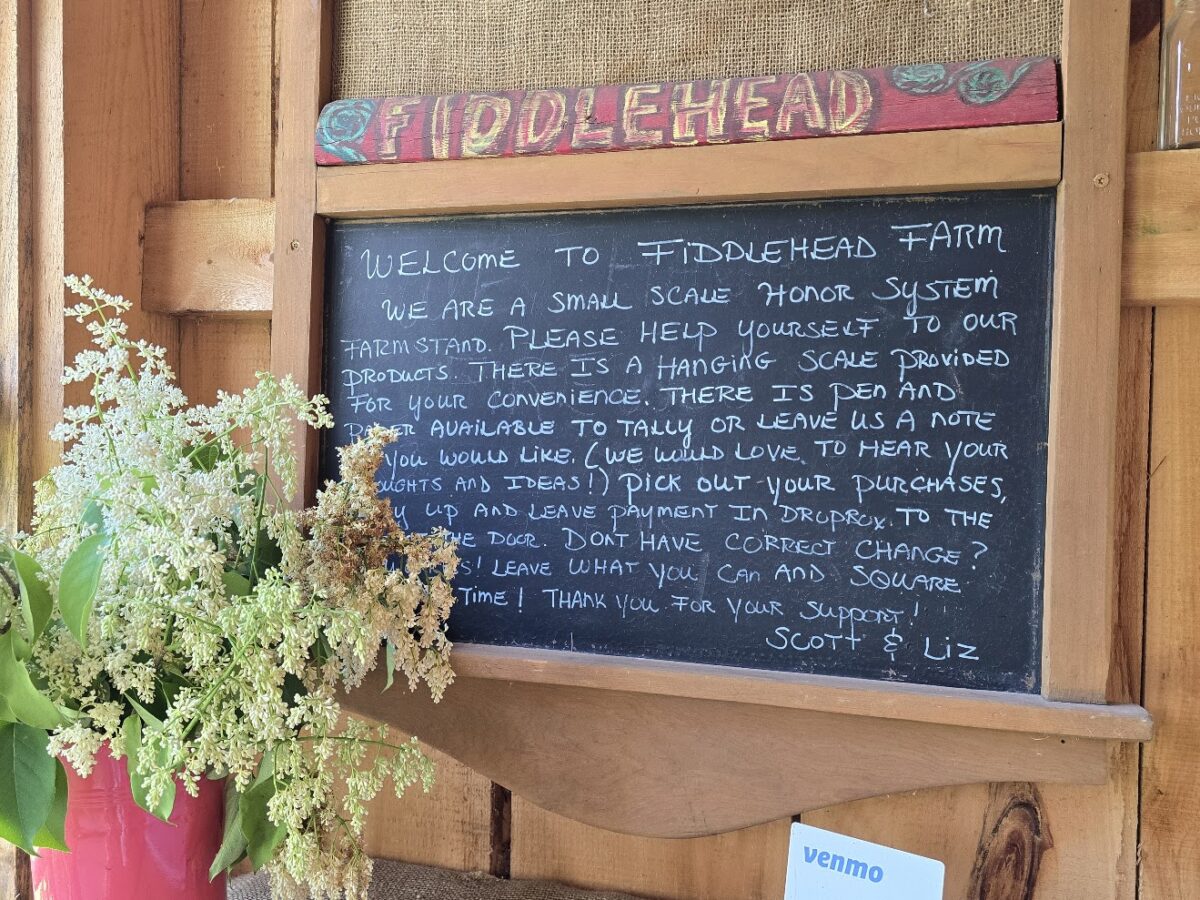 FIDDLEHEAD
WELCOME TO FIDDLEHEAD FARM
WE ARE A SMALL SCALE HONOR SYSTEM
FARMSTAND. PLEASE HELP YOURSELF TO OUR
PRODUCTS. THERE IS A HANGING SCALE PROVIDED
FOR YOUR CONVENIENCE. THERE IS PEN AND
PAPER AVAILABLE TO TALLY OR LEAVE US A NOTE
YOU WOULD LIKE. (WE WOULD LOVE TO HEAR YOUR
THOUGHTS AND IDEAS!) PICK OUT YOUR PURCHASES,
UP AND LEAVE PAYMENT IN DROPBOX TO THE
THE DOOR. DONT HAVE CORRECT CHANGE?
LEAVE WHAT YOU CAN AND SQUARE
TIME! THANK YOU FOR YOUR SUPPORT!
SCOTT & LIZ
venmo